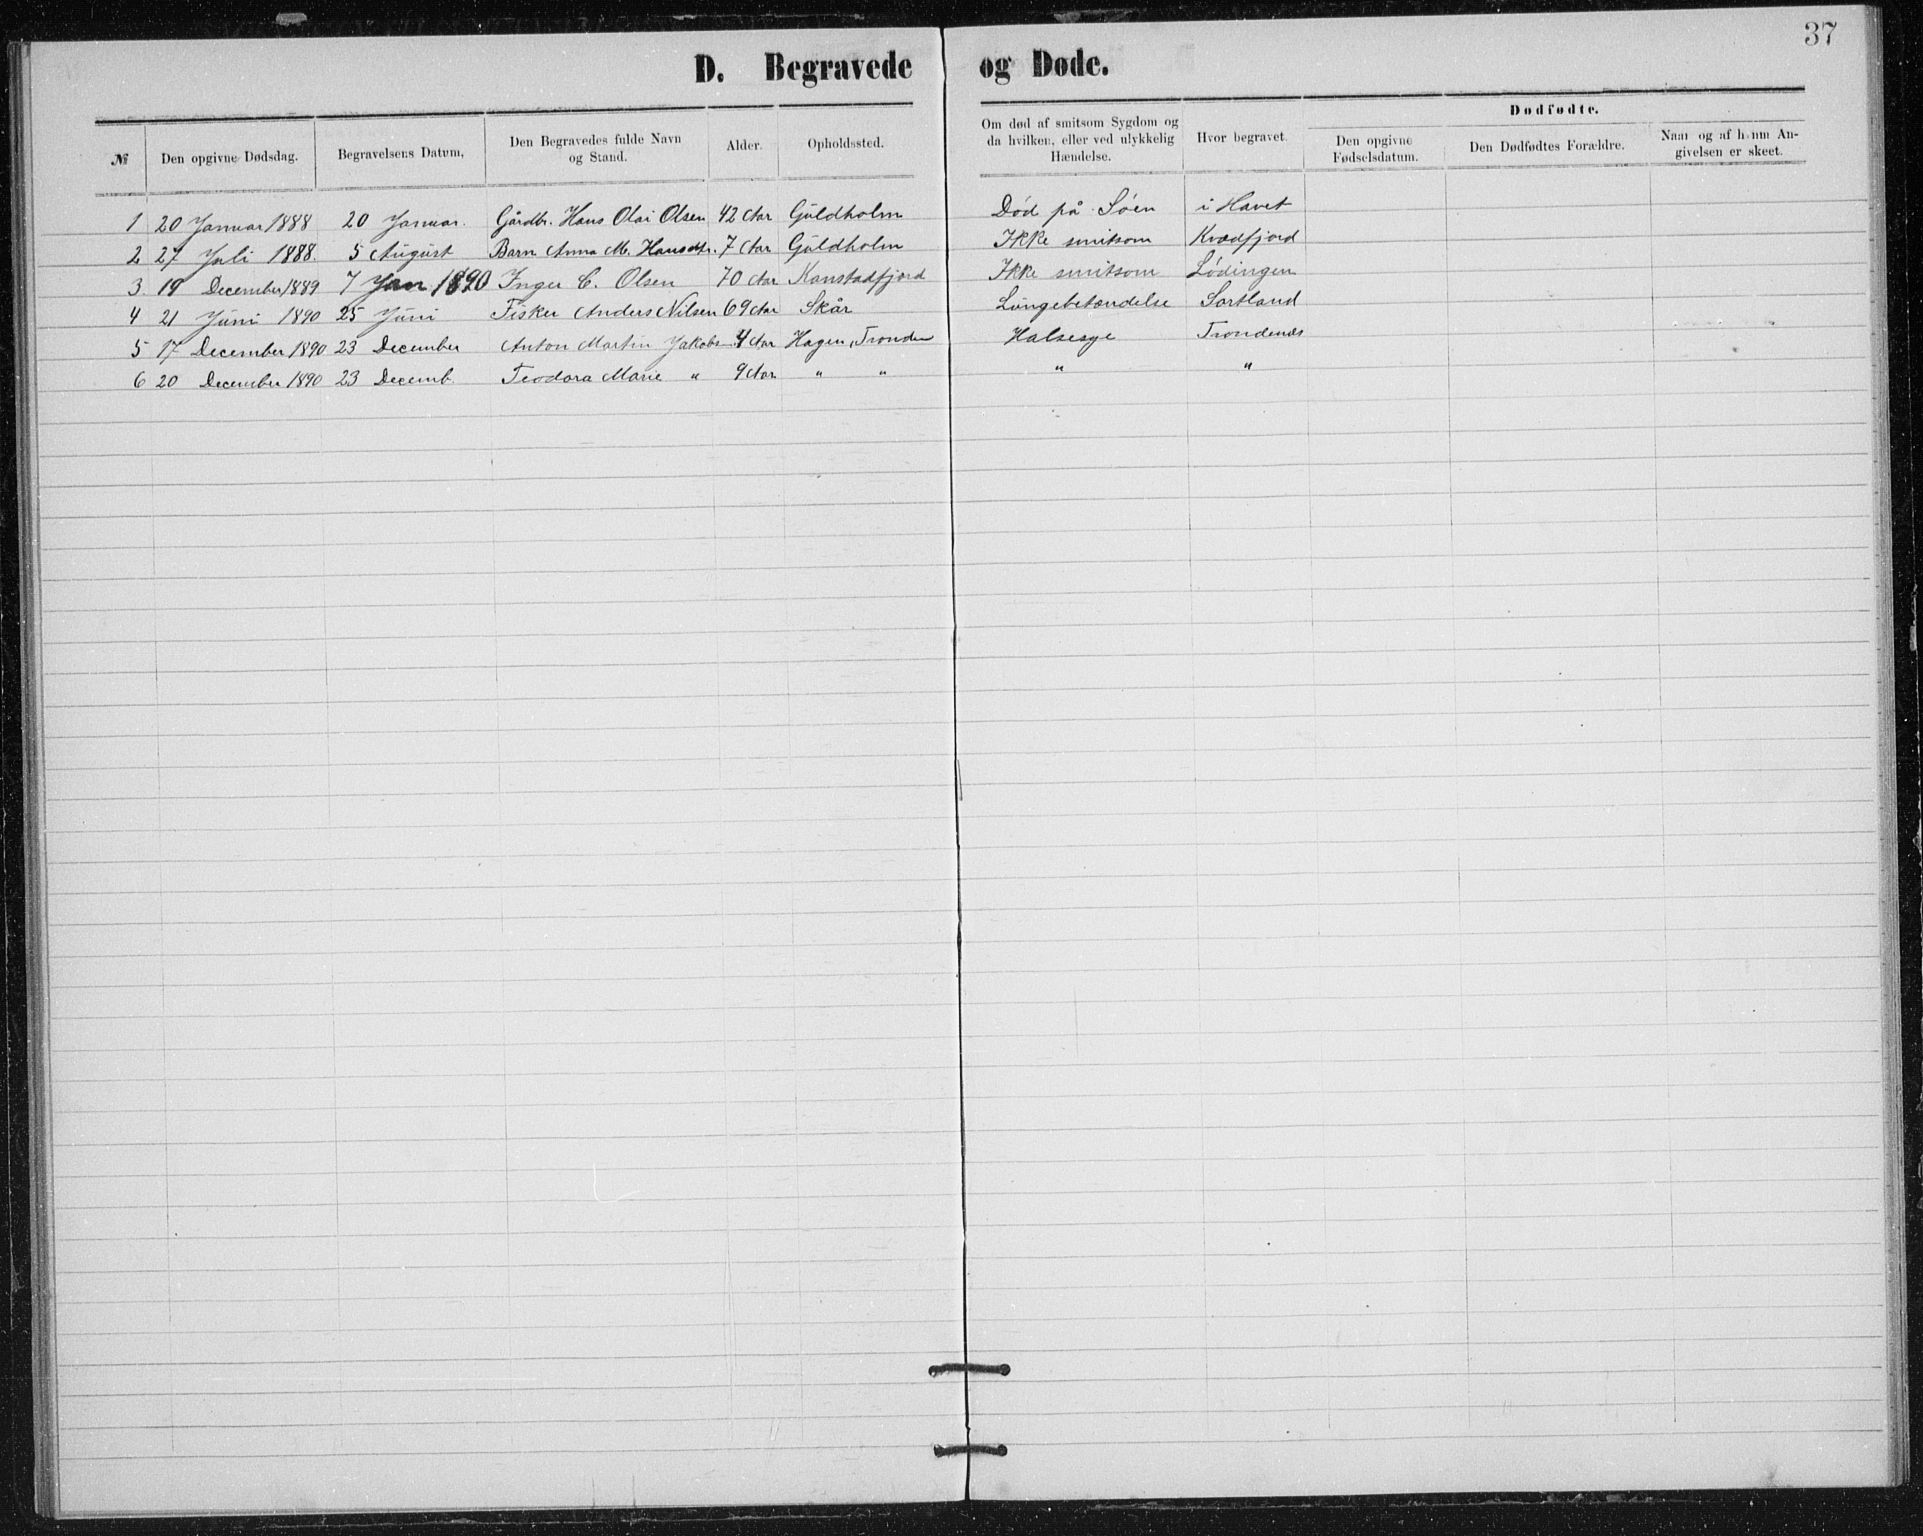 37
D. Begravede og Døde.
№ Den opgivne Dødsdag. Begravelsens Datum, Den Begravedes fulde Navn og Stand. Alder. Opholdssted. Om død af smitsom Sygdom og da hvilken, eller ved ulykkelig Hændelse. Hvor begravet. Dødfødte. Den opgivne Fødselsdatum. Den Dødfødtes Forældre. Naar og af hvem Angivelsen er skeet.
1 20 Januar 1888 20 Januar. Gårdbr. Hans Olai Olsen 42 Aar Guldholm Død på Søen i Havet
2 27 Juli 1888. 5 August Barn Anna M. Hansdtr. 7 Aar Guldholm Ikke smitsom Kvædfjord
3. 19 December 1889 7 Jan 1890 Inger C. Olsen 70 Aar Kanstadfjord Ikke smitsom Lødingen
4 21 Juni 1890 25 Juni Fisker Anders Nilsen 69 Aar Skår Lungebetændelse Sortland
5 17 December 1890 23 December Anton Martin Jakobs 4 Aar Hagen, Tronden Halsesye Trondenæs
6 20 December 1890 23 Decemb. Teodora Marie " 9 Aar " " " "